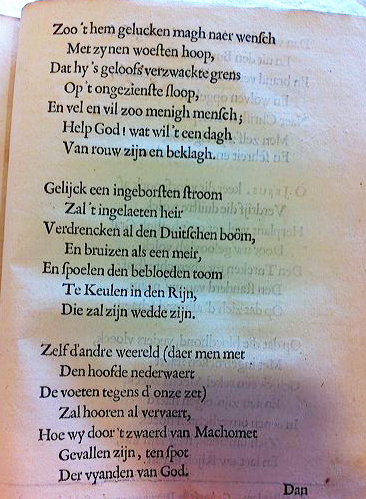 Zoo 't hem gelucken magh naer wensch
Met zynen woesten hoop,
Dat hy 's geloofs verzwackte grens
Op 't ongezienste sloop,
En vel en vil zoo menigh mensch;
Help God! wat wil 't een dagh
Van rouw zijn en beklagh.
Gelijck een ingeborsten stroom
Zal 't ingelaeten heir
Verdrencken al den Duitschen boom,
En bruizen als een meir,
En spoelen den bebloeden toom
Te Keulen in den Rijn,
Die zal zijn wedde zijn.
Zelf d'andre weereld (daer men met
Den hoofde nederwaert
De voeten tegens d'onze zet)
Zal hooren al vervaert,
Hoe wy door 't zwaerd van Machomet
Gevallen zijn, ten spot
Der vyanden van God.
Dan